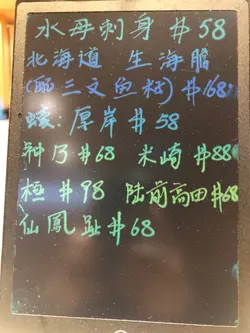 水母刺身 #58
北海道 生海膽
(配三文魚籽) #168
蠔:厚岸 #58
釧乃 #68 米崎 #88
極 #98 陸前高田 #68
仙鳳趾 #68